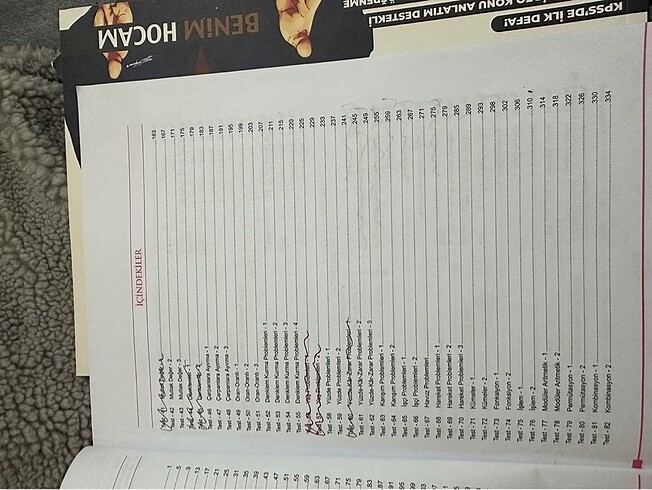 BENİM HOCAM
KPSS'DE İLK DEFA!
KONU ANLATIM DESTEKLİ
İÇİNDEKİLER
163
Test - 42 Mutlak Değer - 2 167
Test - 43 Mutlak Değer - 3 171
175
179
Test - 46 Çarpanlara Ayırma - 1 183
Test - 47 Çarpanlara Ayırma - 2 187
Test - 48 Çarpanlara Ayırma - 3 191
Test - 49 Oran-Orantı - 1 195
Test - 50 Oran-Orantı - 2 199
Test - 51 Oran-Orantı - 3 203
Test - 52 Denklem Kurma Problemleri - 1 207
Test - 53 Denklem Kurma Problemleri - 2 211
Test - 54 Denklem Kurma Problemleri - 3 215
Test - 55 Denklem Kurma Problemleri - 4 220
225
229
Test - 58 Yüzde Problemleri - 1 233
Test - 59 Yüzde Problemleri - 2 237
Test - 60 Yüzde-Kâr-Zarar Problemleri - 1 241
Test - 61 Yüzde-Kâr-Zarar Problemleri - 2 245
Test - 62 Yüzde-Kâr-Zarar Problemleri - 3 249
Test - 63 Karışım Problemleri - 1 255
Test - 64 Karışım Problemleri - 2 259
Test - 65 İşçi Problemleri - 1 263
Test - 66 İşçi Problemleri - 2 267
Test - 67 Havuz Problemleri 271
Test - 68 Hareket Problemleri - 1 275
Test - 69 Hareket Problemleri - 2 279
Test - 70 Hareket Problemleri - 3 285
Test - 71 Kümeler - 1 289
Test - 72 Kümeler - 2 293
Test - 73 Fonksiyon - 1 298
Test - 74 Fonksiyon - 2 302
Test - 75 İşlem - 1 306
Test - 76 İşlem - 2 310
Test - 77 Modüler Aritmetik - 1 314
Test - 78 Modüler Aritmetik - 2 318
Test - 79 Permütasyon - 1 322
Test - 80 Permütasyon - 2 326
Test - 81 Kombinasyon - 1 330
Test - 82 Kombinasyon - 2 334